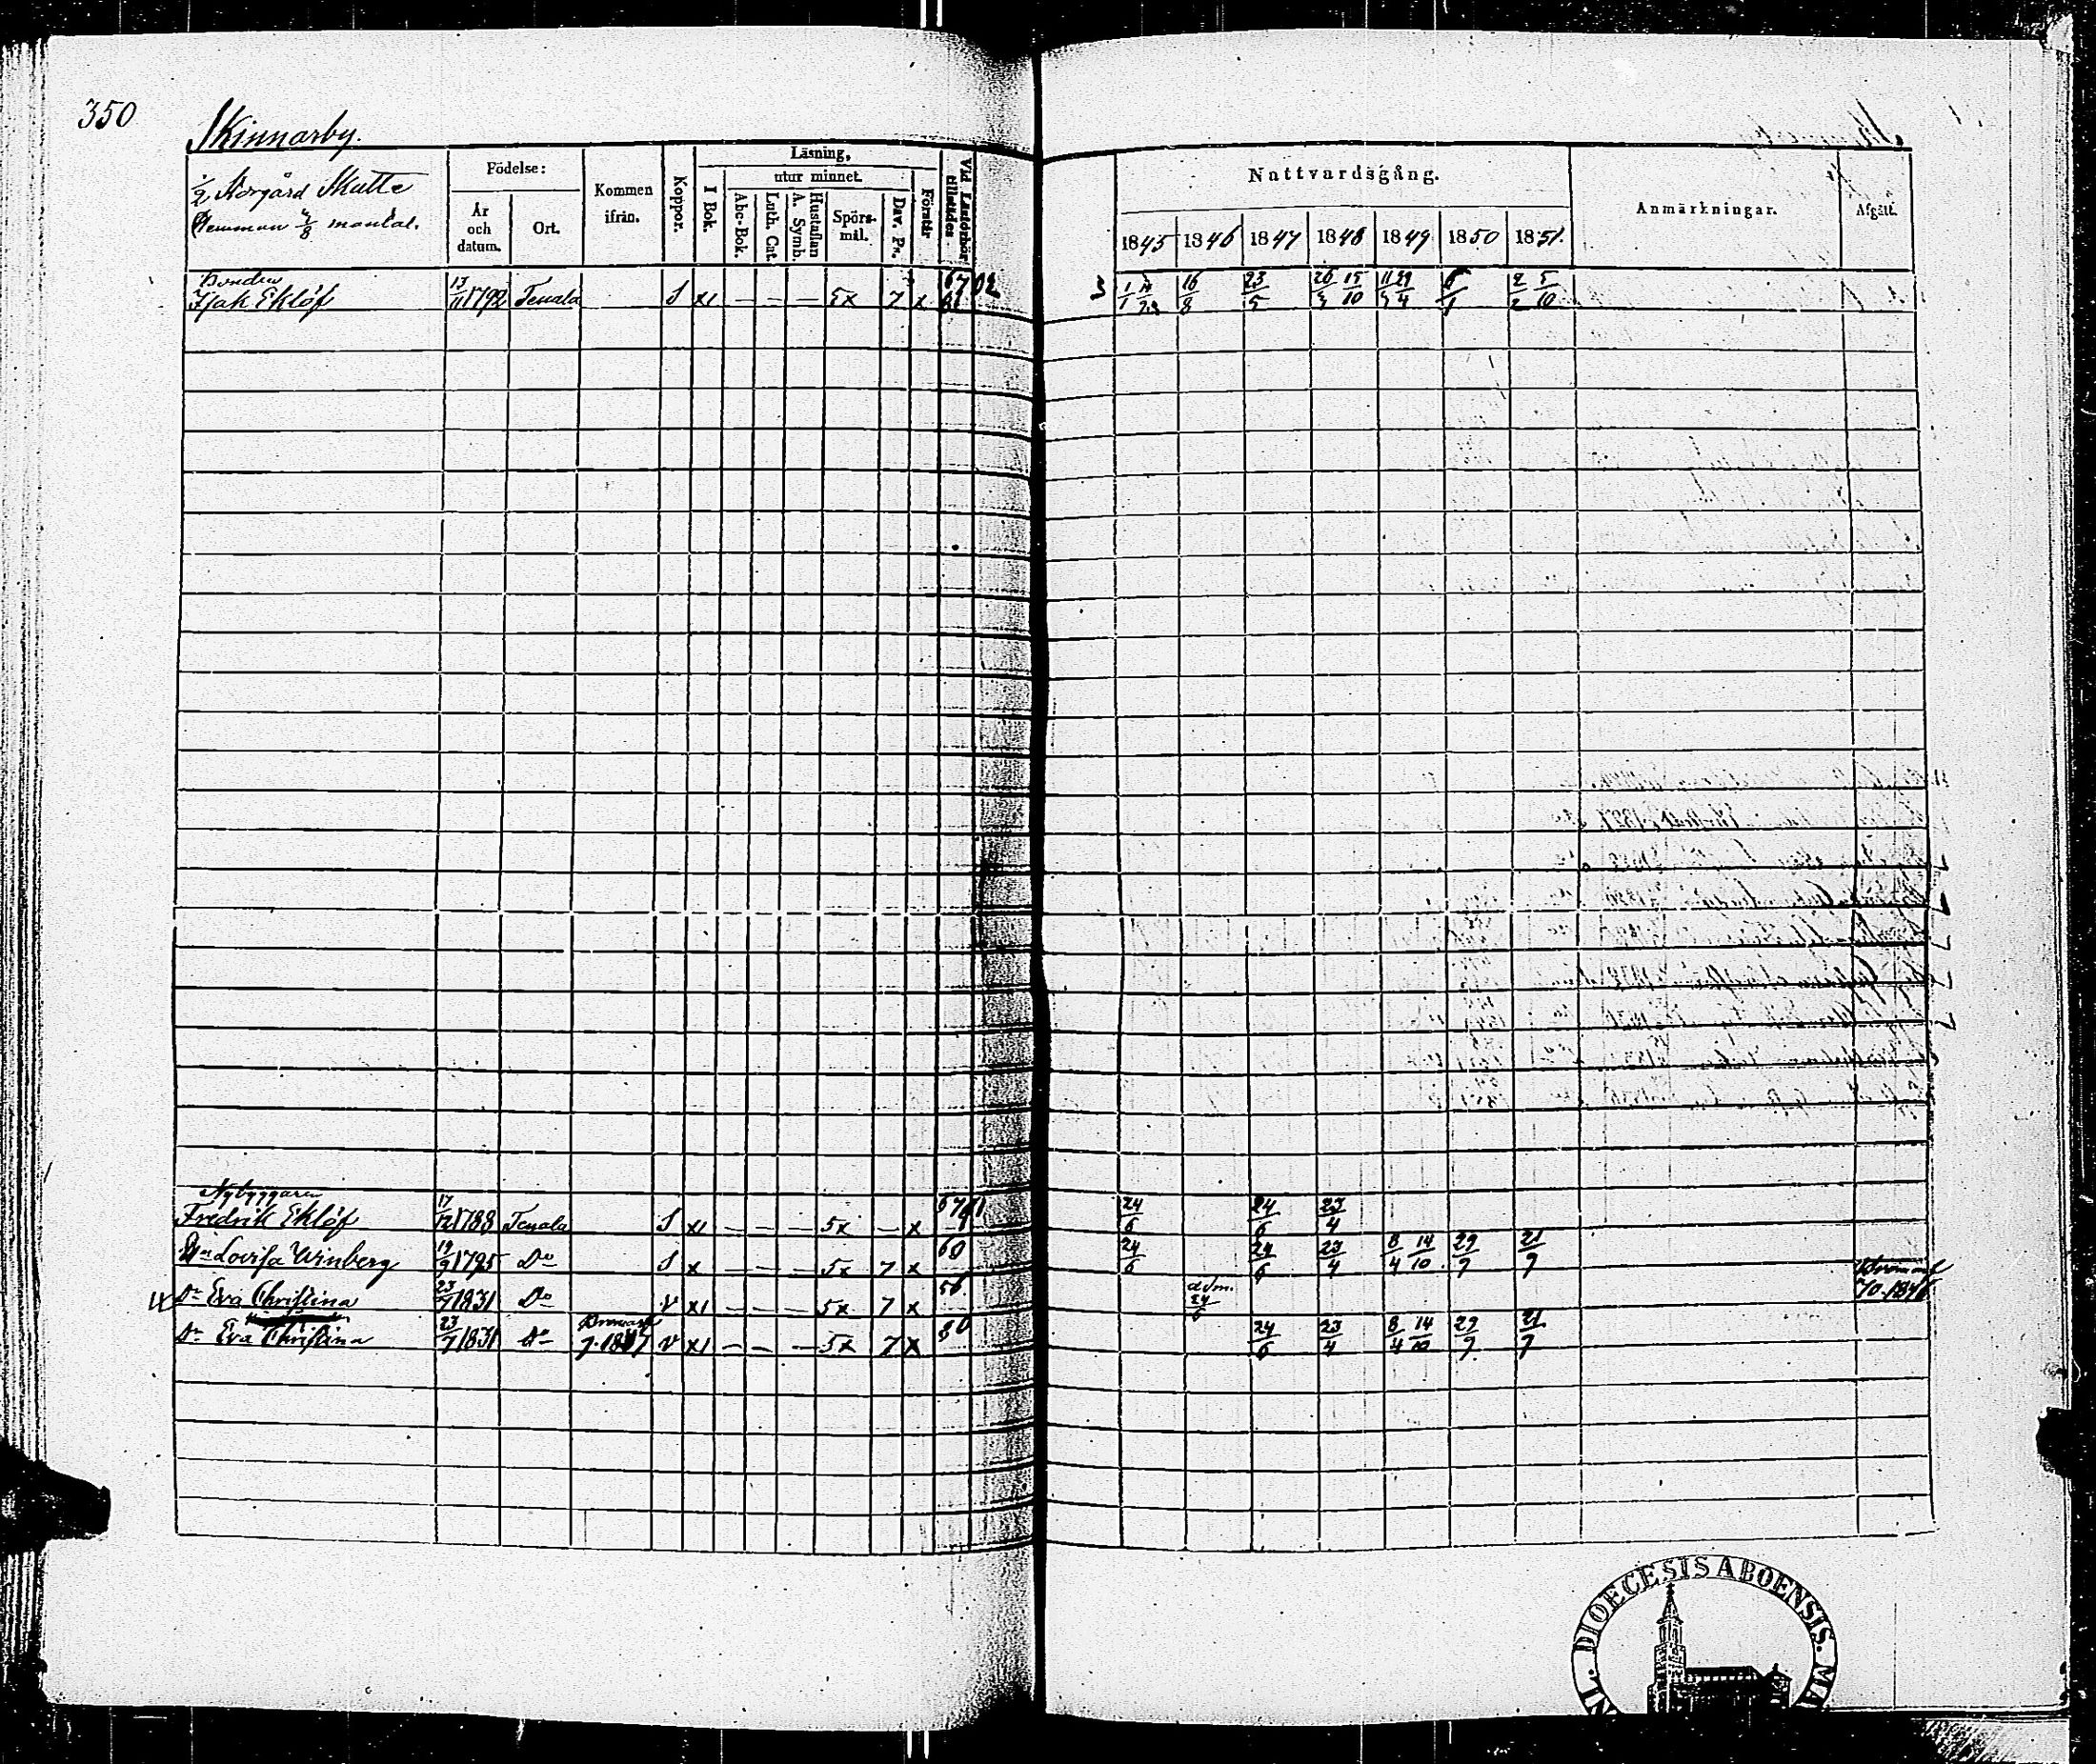 350
Skinnarby.
1/2 Storgård Skatte
Hemman 4/8 mantal.
Födelse:
År och datum.
Ort.
Kommen ifrån.
Koppor.
Läsning,
I Bok.
utur minnet.
Abc-Bok.
Luth. Cat.
Hustaflan A. Symb.
Spörs-mål.
Dav. Ps.
Förstår
Vid Läsförhör tillstädes.
Nattvardsgång.
1845 1846 1847 1848 1849 1850 1851.
Anmärkningar.
Afgått.
Bonden
Isak Eklöf 13/11 1792 Tenala S x1 — — — 5x 7 x 3 16/8 23/5 15/10 2/2 5/10
Nybyggaren
Fredrik Eklöf 17/12 1788 Tenala S x1 — — — 5x — x 24/6 24/6 23/4
Lovisa Winberg 19/9 1795 Do S x — — — 5x 7 x 60 24/6 24/6 23/4 8/4 14/10 29/9 21/9
Dr Eva Christina 23/7 1831 Do v x1 — — — 5x 7 x 56 adm. 24/6
Dr Eva Christina 23/7 1831 Do 7. 1847 v x1 — — — 5x 7 x 24/6 23/4 8/4 14/10 29/9 21/7
DIOECESIS ABOENSIS. MA